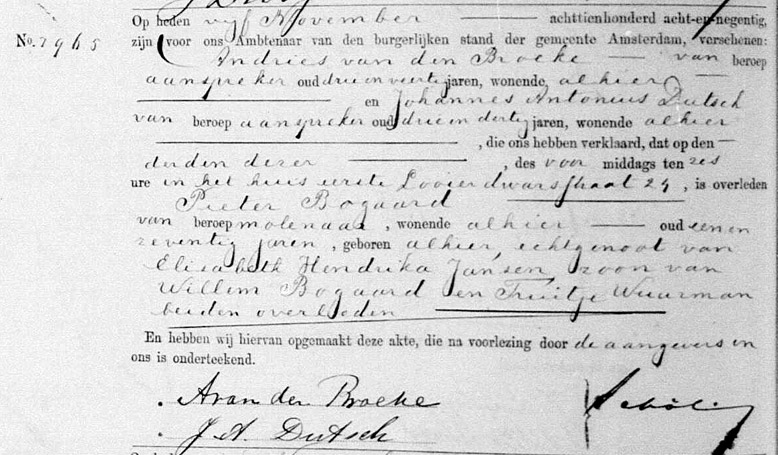 Op heden vijf November achttienhonderd acht-en-negentig,
No. 2965 zijn voor ons Ambtenaar van den burgerlijken stand der gemeente Amsterdam, verschenen:
Andries van den Broeke van beroep
aanspreker oud drie en veertig jaren, wonende, alhier
en Johannes Antonius Dutsch
van beroep aanspreker oud drie en dertig jaren, wonende alhier
, die ons hebben verklaard, dat op den
derden dezer , des voor middags ten zes
ure in het huis eerste Looierdwarsstraat 24, is overleden
Pieter Bogaard
van beroep molenaar, wonende alhier oud een en
zeventig jaren, geboren alhier, echtgenoot van
Elisabeth Hendrika Jansen, zoon van
Willem Bogaard en Truitje Wuurman
beiden overleden
En hebben wij hiervan opgemaakt deze akte, die na voorlezing door de aangevers en
ons is onderteekend.
A van den Broeke
J. A. Dutsch